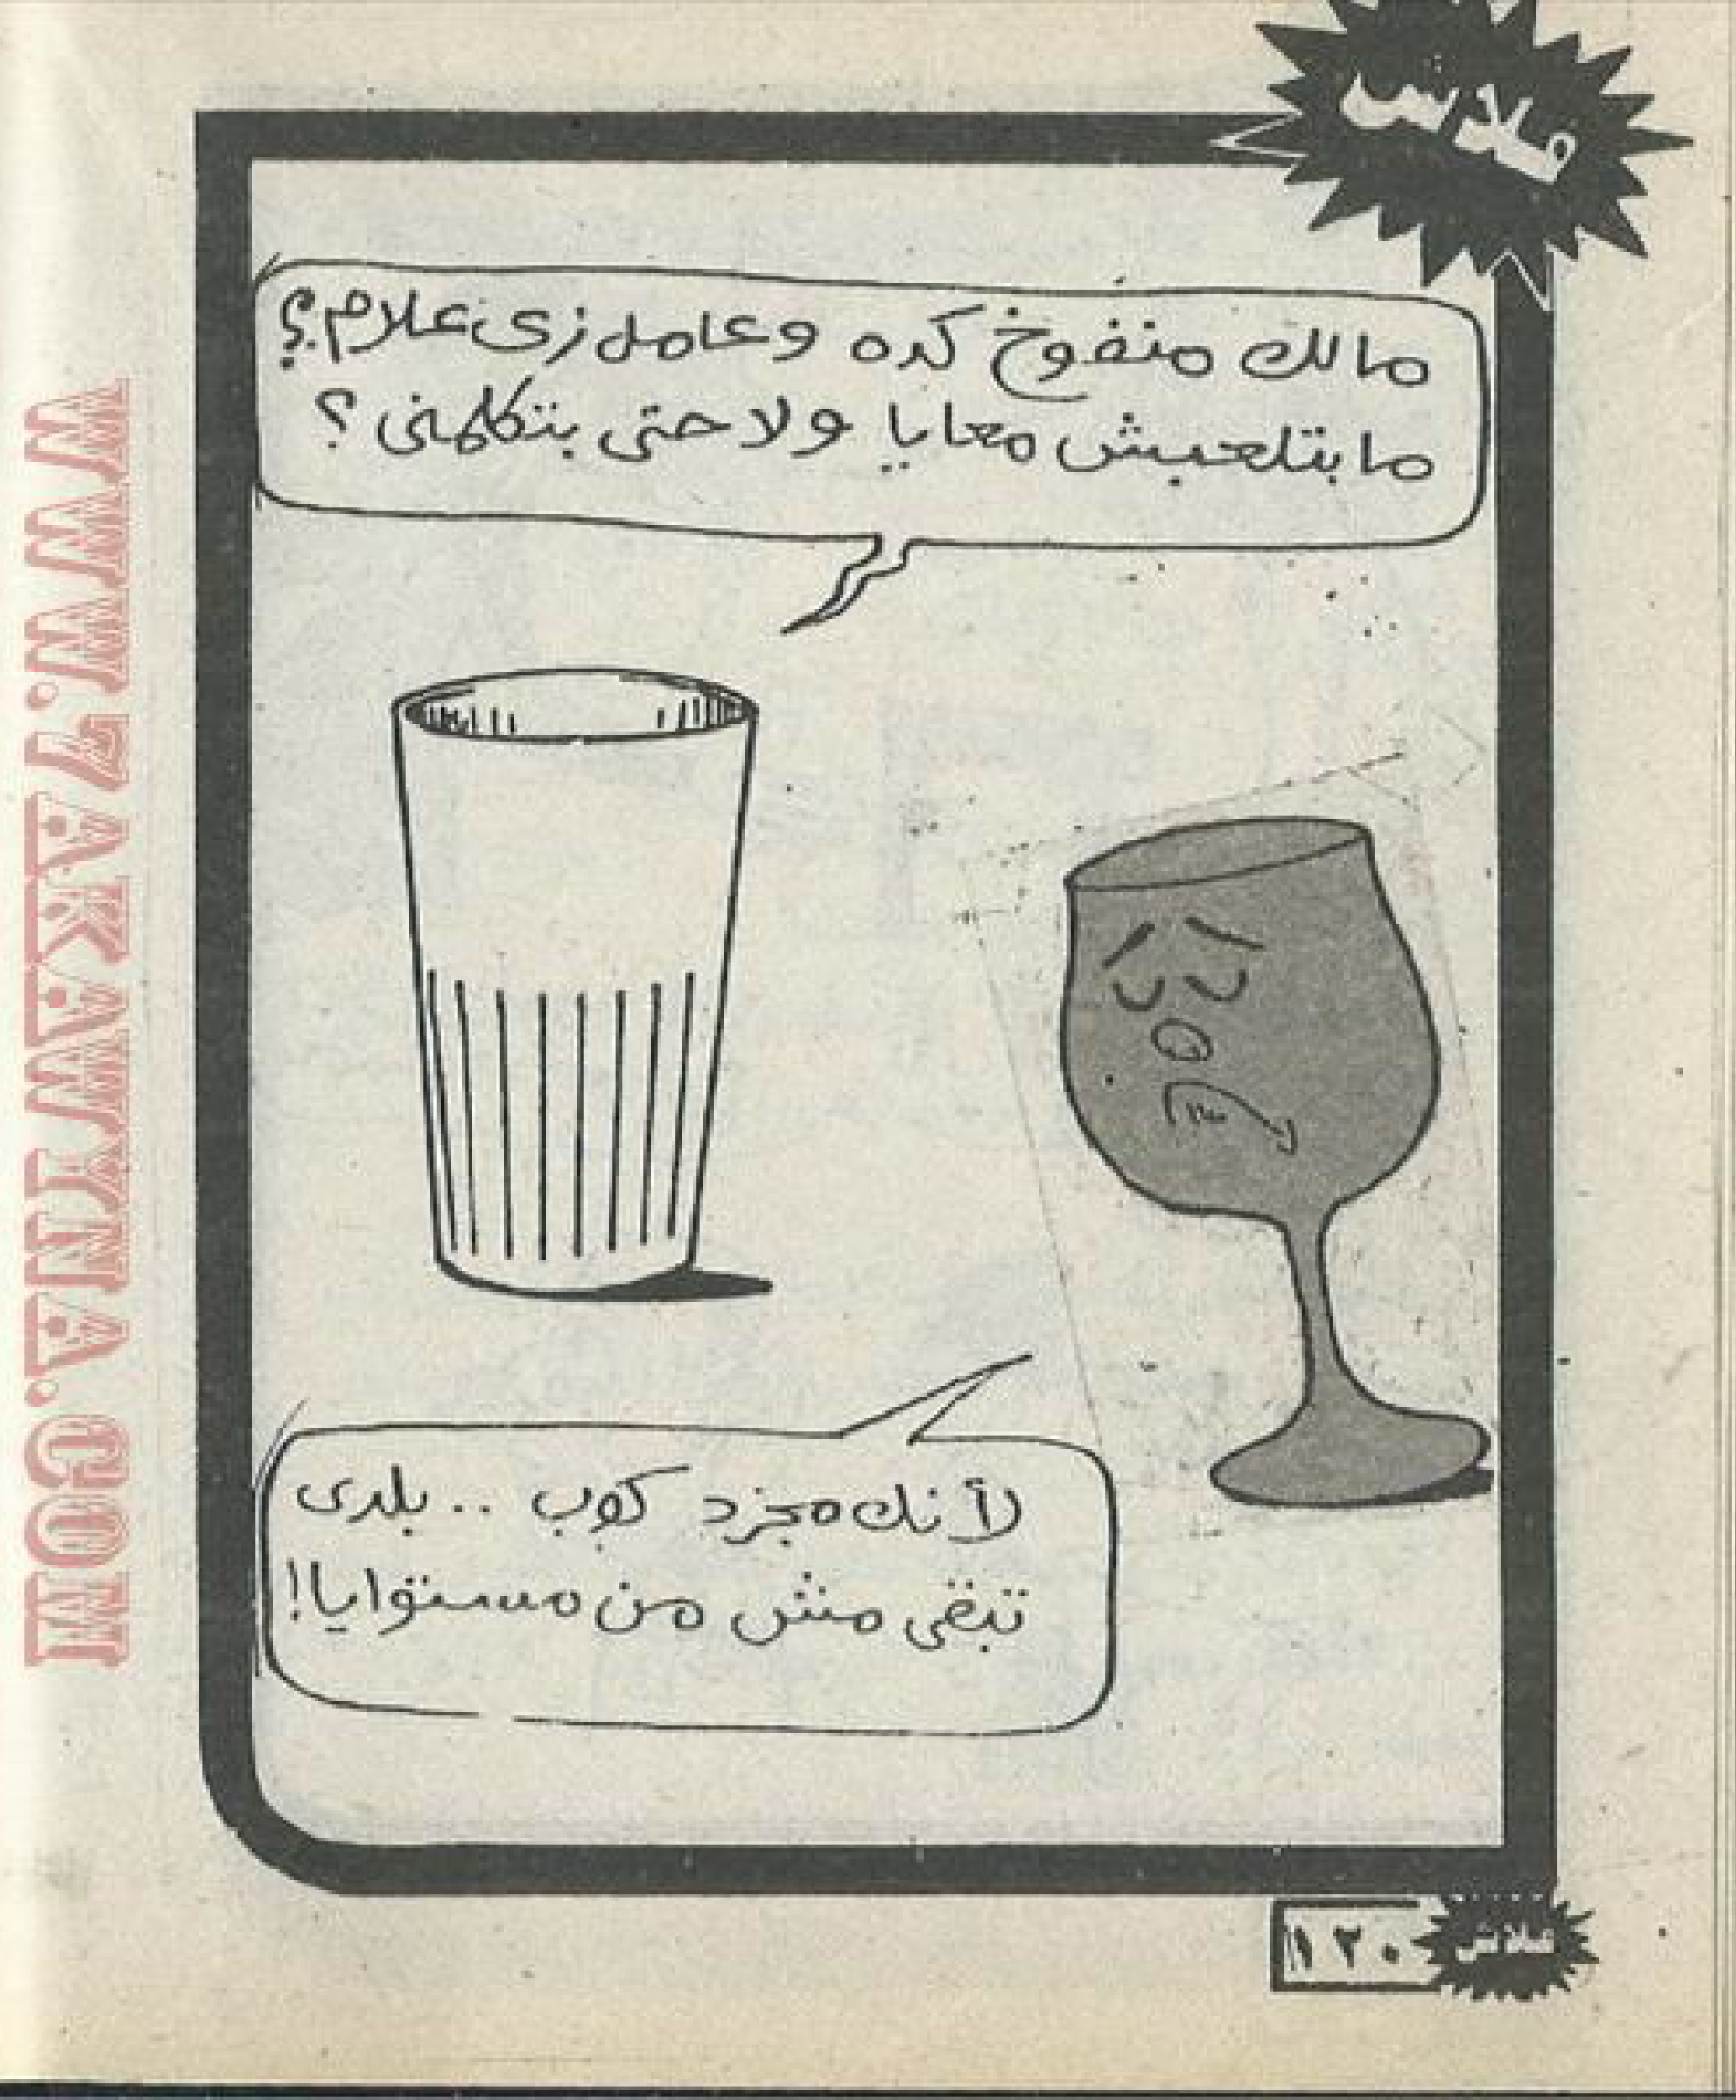 فلاش
مالك منفوخ كده وعامل زى علام؟
ما بتلعبش معايا ولا حتى بتكلمنى؟
لأنك مجرد كوب .. بلدى
تبقى مش من مستوايا!
١٢٠
فلاش
WWW.7AKAWINNA.COM